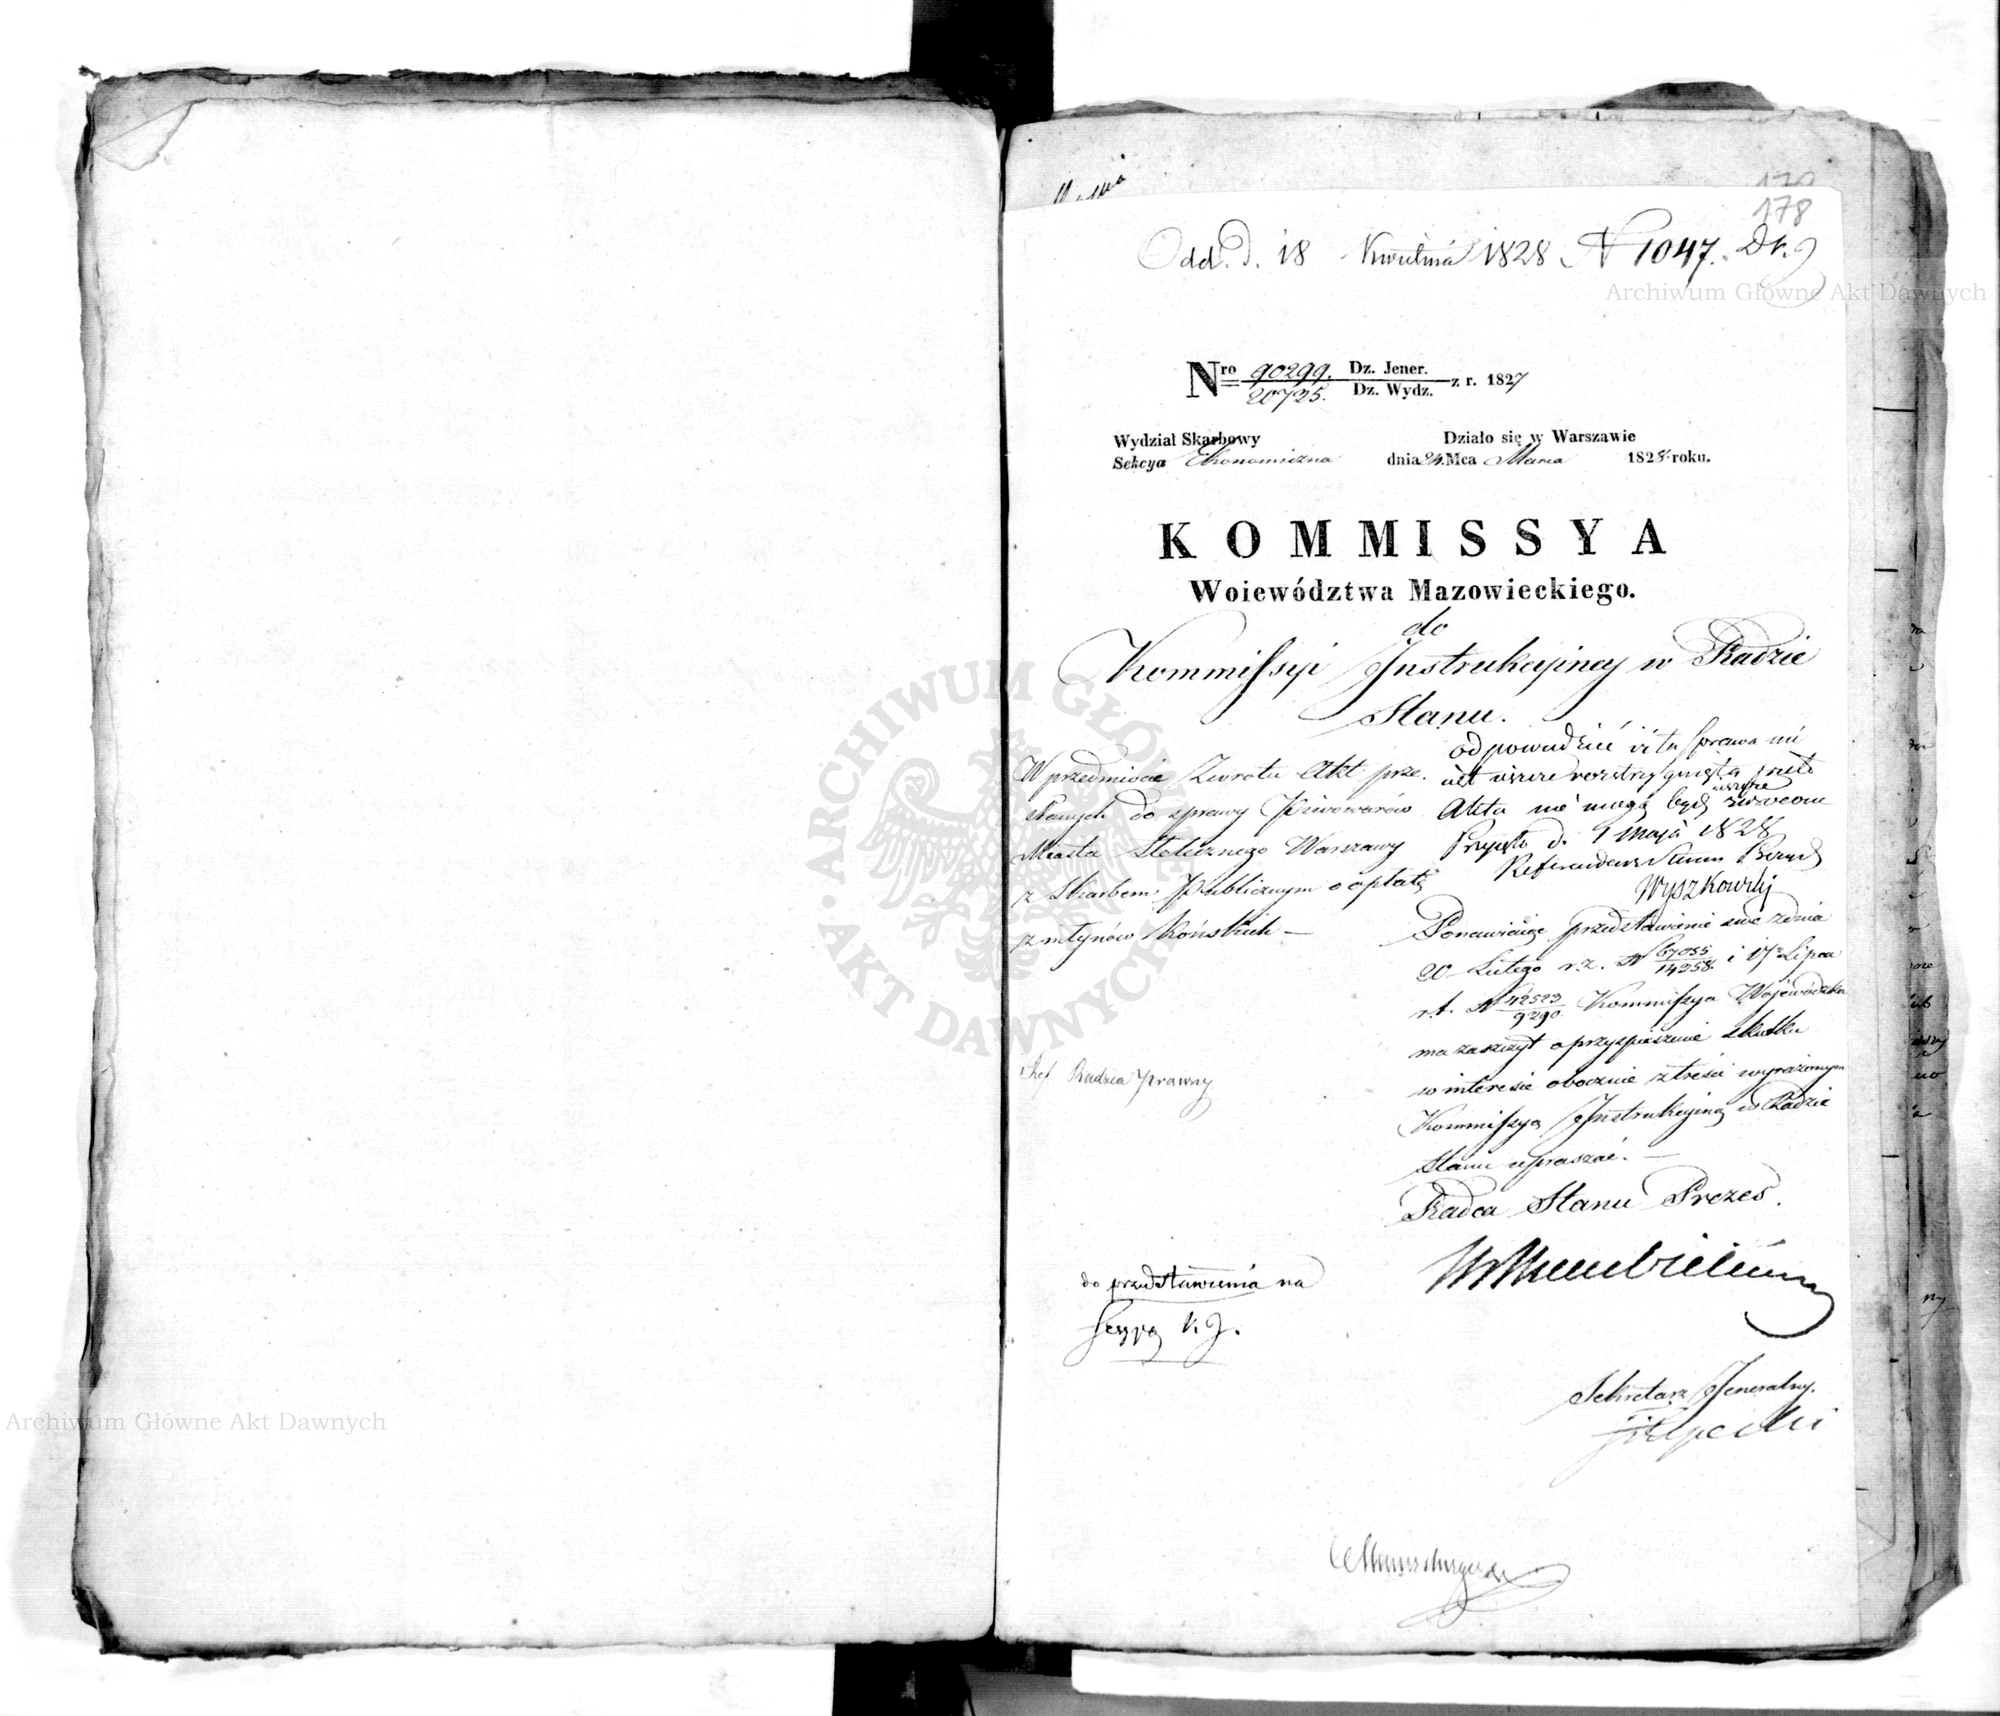 178
Odd. d. 18 Kwietnia 1828 N 1047. Dr.
Archiwum Główne Akt Dawnych
Nro 90299. Dz. Jener.
20725. Dz. Wydz. z r. 1827
Wydział Skarbowy
Sekcya Ekonomiczna
Działo się w Warszawie
dnia 24. Mca Marca 1828. roku.
KOMMISSYA
Woiewództwa Mazowieckiego.
do
Kommissyi Instrukcyiney w Radzie
Stanu.
W przedmiocie Zwrotu Akt prze-
słanych do sprawy Piwowarów
Miasta Stołecznego Warszawy
z Skarbem Publicznym o opłatę
z młynów Końskich —
odpowiedzieć iż ta sprawa nie
iest ieszcze rozstrzygnięta przeto
Akta nie mogą bydź ieszcze zwrócone
Przyięto d. 1 Maja 1828
Referendarz Stanu
Wyszkowski
Ponawiaiąc przedstawienie swe z dnia
20 Lutego r.z. N 67055/14358. i 17 Lipca
r.t. N 42523/9290. Kommissya Wojewódzka
ma zaszczyt o przyspieszenie skutku
w interesie obocznie z treści wyrażonym
Kommissyą Instrukcyiną w Radzie
Stanu upraszać. —
Radca Stanu Prezes.
Szef Radzca Prawny
do przedstawienia na
Sessyą K. J.
Sekretarz Jeneralny.
Archiwum Główne Akt Dawnych
ARCHIWUM GŁÓWNE
AKT DAWNYCH